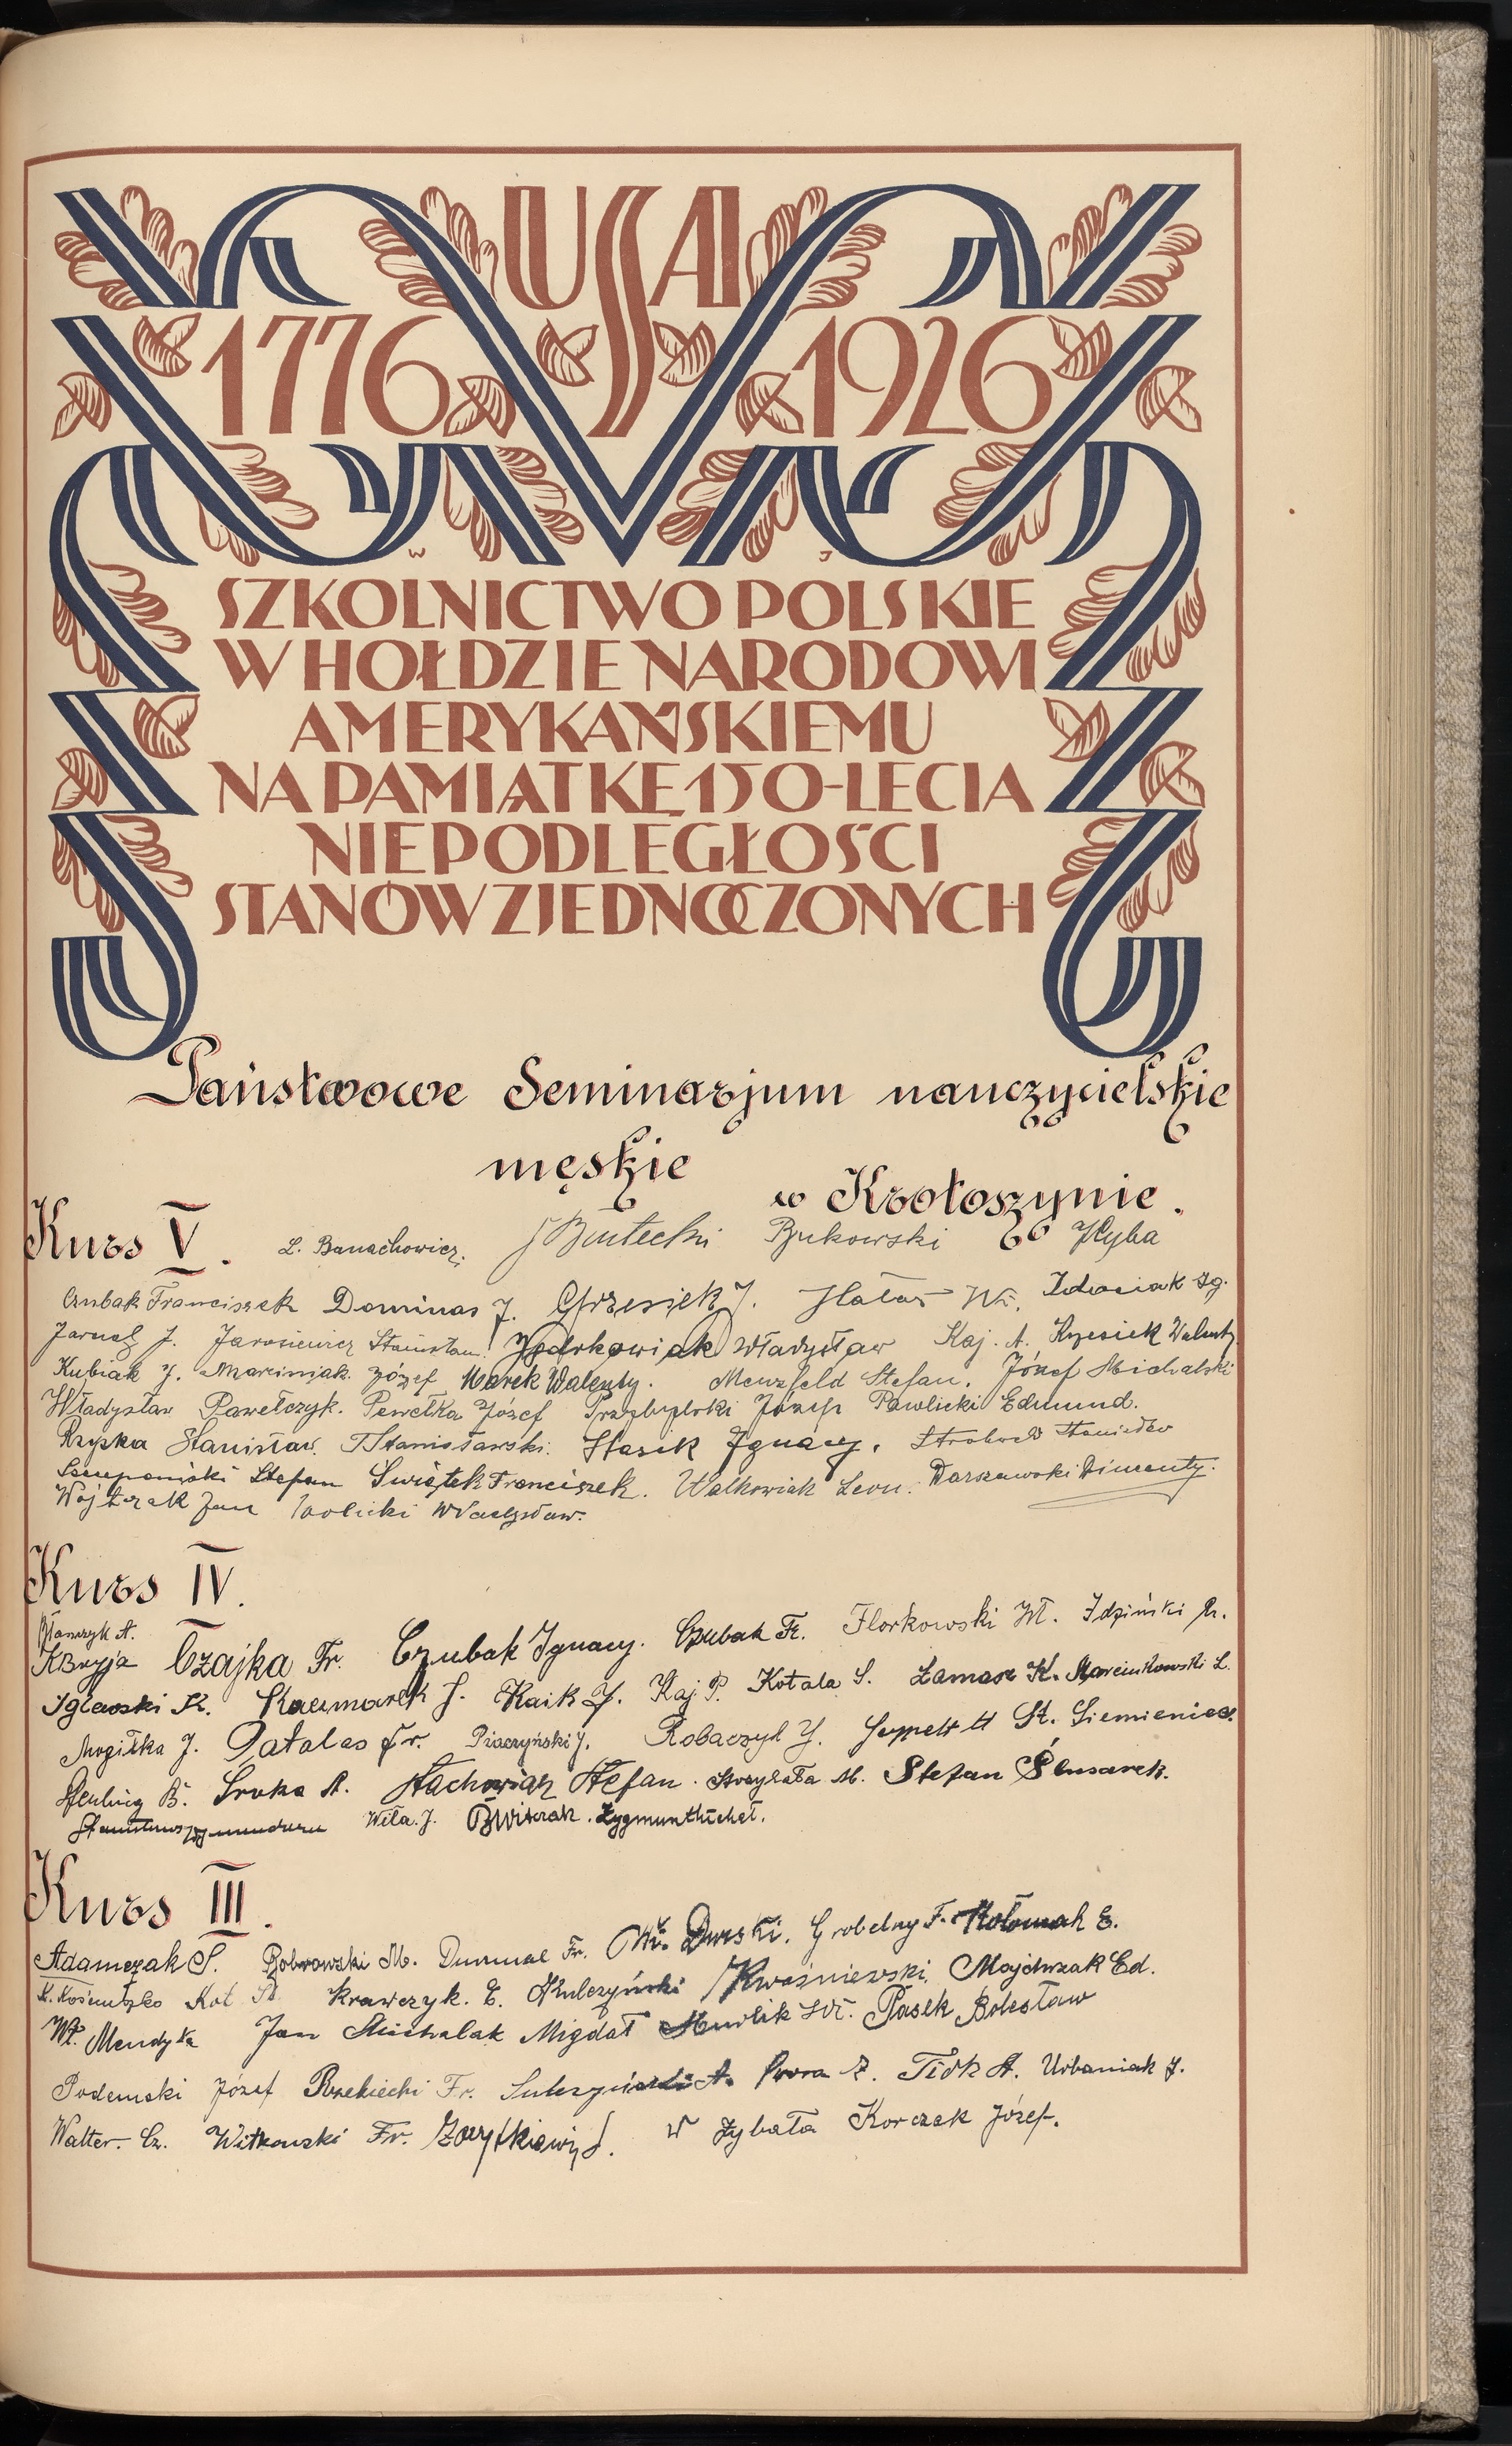 USA
1776 1926
W J
SZKOLNICTWO POLSKIE
W HOŁDZIE NARODOWI
AMERYKAŃSKIEMU
NA PAMIĄTKĘ 150-LECIA
NIEPODLEGŁOŚCI
STANÓW ZJEDNOCZONYCH
Państwowe Seminarjum nauczycielskie
męskie
w Krotoszynie.
Kurs V. L. Banachowicz. Bukowski
Czubak Franciszek Dominas J. Grzesiek J. Hałas Wł. Idasiak Ig.
J. Jarosiewicz Stanisław Władysław Kaj. A. Krzesiek Walenty
Kubiak J. Marciniak Józef Marek Walenty. Menzfeld Stefan. Józef Michalski
Władysław Pawełczyk. Pewełka Józef Przybylski Józef Pawlicki Edmund.
Rzepka Stanisław. Stanisławski. Stasik Ignacy. Stanisław
Szczepaniski Stefan Świątek Franciszek. Walkowiak Leon. Warszawski Wincenty.
Wojtczak Jan Wolicki Wacław.
Kurs IV.
A.
KBryja Czajka Fr. Czubak Ignacy. Czubak Fr. Florkowski Wł. Idziński
Iglewski K. Kaczmarek J. Kaik J. Kaj P. Kotala S. Łamasz K. Marcinkowski L.
Mogiłka J. Patalas Fr. Piaczyński J. Robaczyk J. Seppelt H St. Siemieniec
B. Sroka A. Stachowiak Stefan. Strzykała M. Stefan Ślusarek.
Wiła. J. BWitczak. Zygmunt Michel.
Kurs III.
Adamczak S. Bobrowski M. Durmal Fr. Wł. Durski. Grobelny F. Kołomak E.
K. Kościuszko Kot St Krawczyk. E. Kulczyński Kwaśniewski. Majchrzak Ed.
Wł. Mendyka Jan Michalak Migdał Pasek Bolesław
Podemski Józef Fr. Sulczyński A. Tick A. Urbaniak J.
Walter. Cz. Witkowski Fr. W Zybała Korczak Józef.